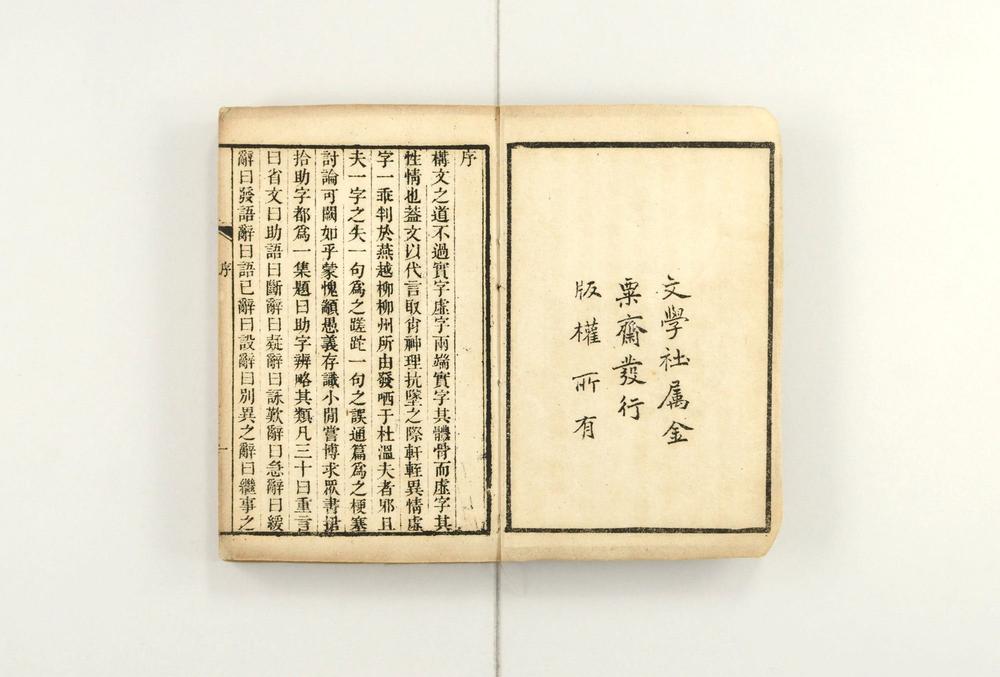 文學社属金
粟齋發行
版權所有
序
構文之道不過實字虛字兩端實字其體骨而虛字其
性情也葢文以代言取肖神理抗墜之際軒輊異情虛
字一乖判於燕越柳柳州所由發哂于杜溫夫者邪且
夫一字之失一句爲之蹉跎一句之誤通篇爲之梗塞
討論可闕如乎蒙愧顓愚義存識小閒嘗博求眾書捃
拾助字都爲一集題曰助字辨略其類凡三十曰重言
曰省文曰助語曰斷辭曰疑辭曰詠歎辭曰急辭曰緩
辭曰發語辭曰語已辭曰設辭曰別異之辭曰繼事之
序
一